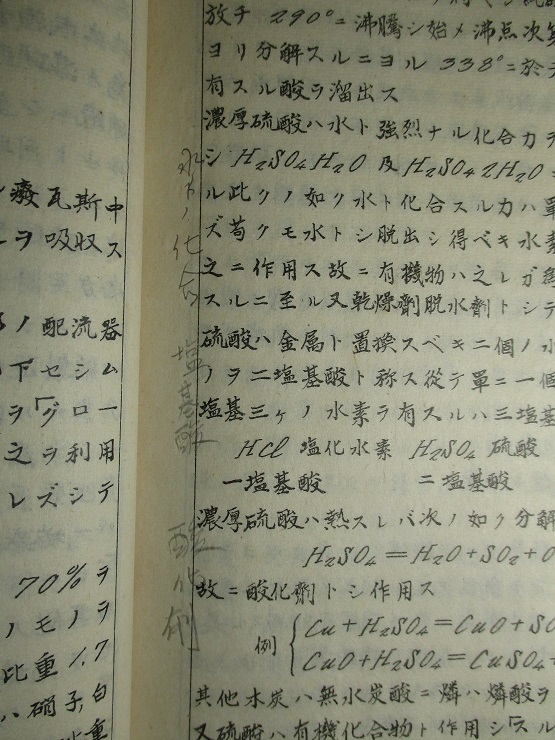 放チ 290°ニ沸騰シ始メ沸点次第
ヨリ分解スルニヨル 338°ニ於テ
有スル酸ヲ溜出ス
濃厚硫酸ハ水ト強烈ナル化合力ヲ
シ H₂SO₄H₂O 及 H₂SO₄2H₂O
ル此クノ如ク水ト化合スル力ハ量
ズ苟クモ水トシ脱出シ得ベキ水素
之ニ作用ス故ニ有機物ハ之レガ為
スルニ至ル又乾燥劑脱水劑トシテ
硫酸ハ金属ト置換スベキ二個ノ水
ノヲ二塩基酸ト称ス從テ單ニ一個
塩基三ヶノ水素ヲ有スルハ三塩基
HCl 塩化水素 H₂SO₄ 硫酸
一塩基酸 二塩基酸
濃厚硫酸ハ熱スレバ次ノ如ク分解
H₂SO₄ = H₂O + SO₂ + O
故ニ酸化劑トシ作用ス
例 Cu + H₂SO₄ = CuO + SO
CuO + H₂SO₄ = CuSO₄
其他木炭ハ無水炭酸ニ燐ハ燐酸ヲ
又硫酸ハ有機化合物ト作用シ スル
水トノ化合
塩基酸
酸化剤
癈瓦斯中
ヲ吸収ス
ノ配流器
下セシム
ヲ「グロー
之ヲ利用
レズシテ
70%ヲ
ノモノヲ
比重1.7
ハ硝子,白
比重